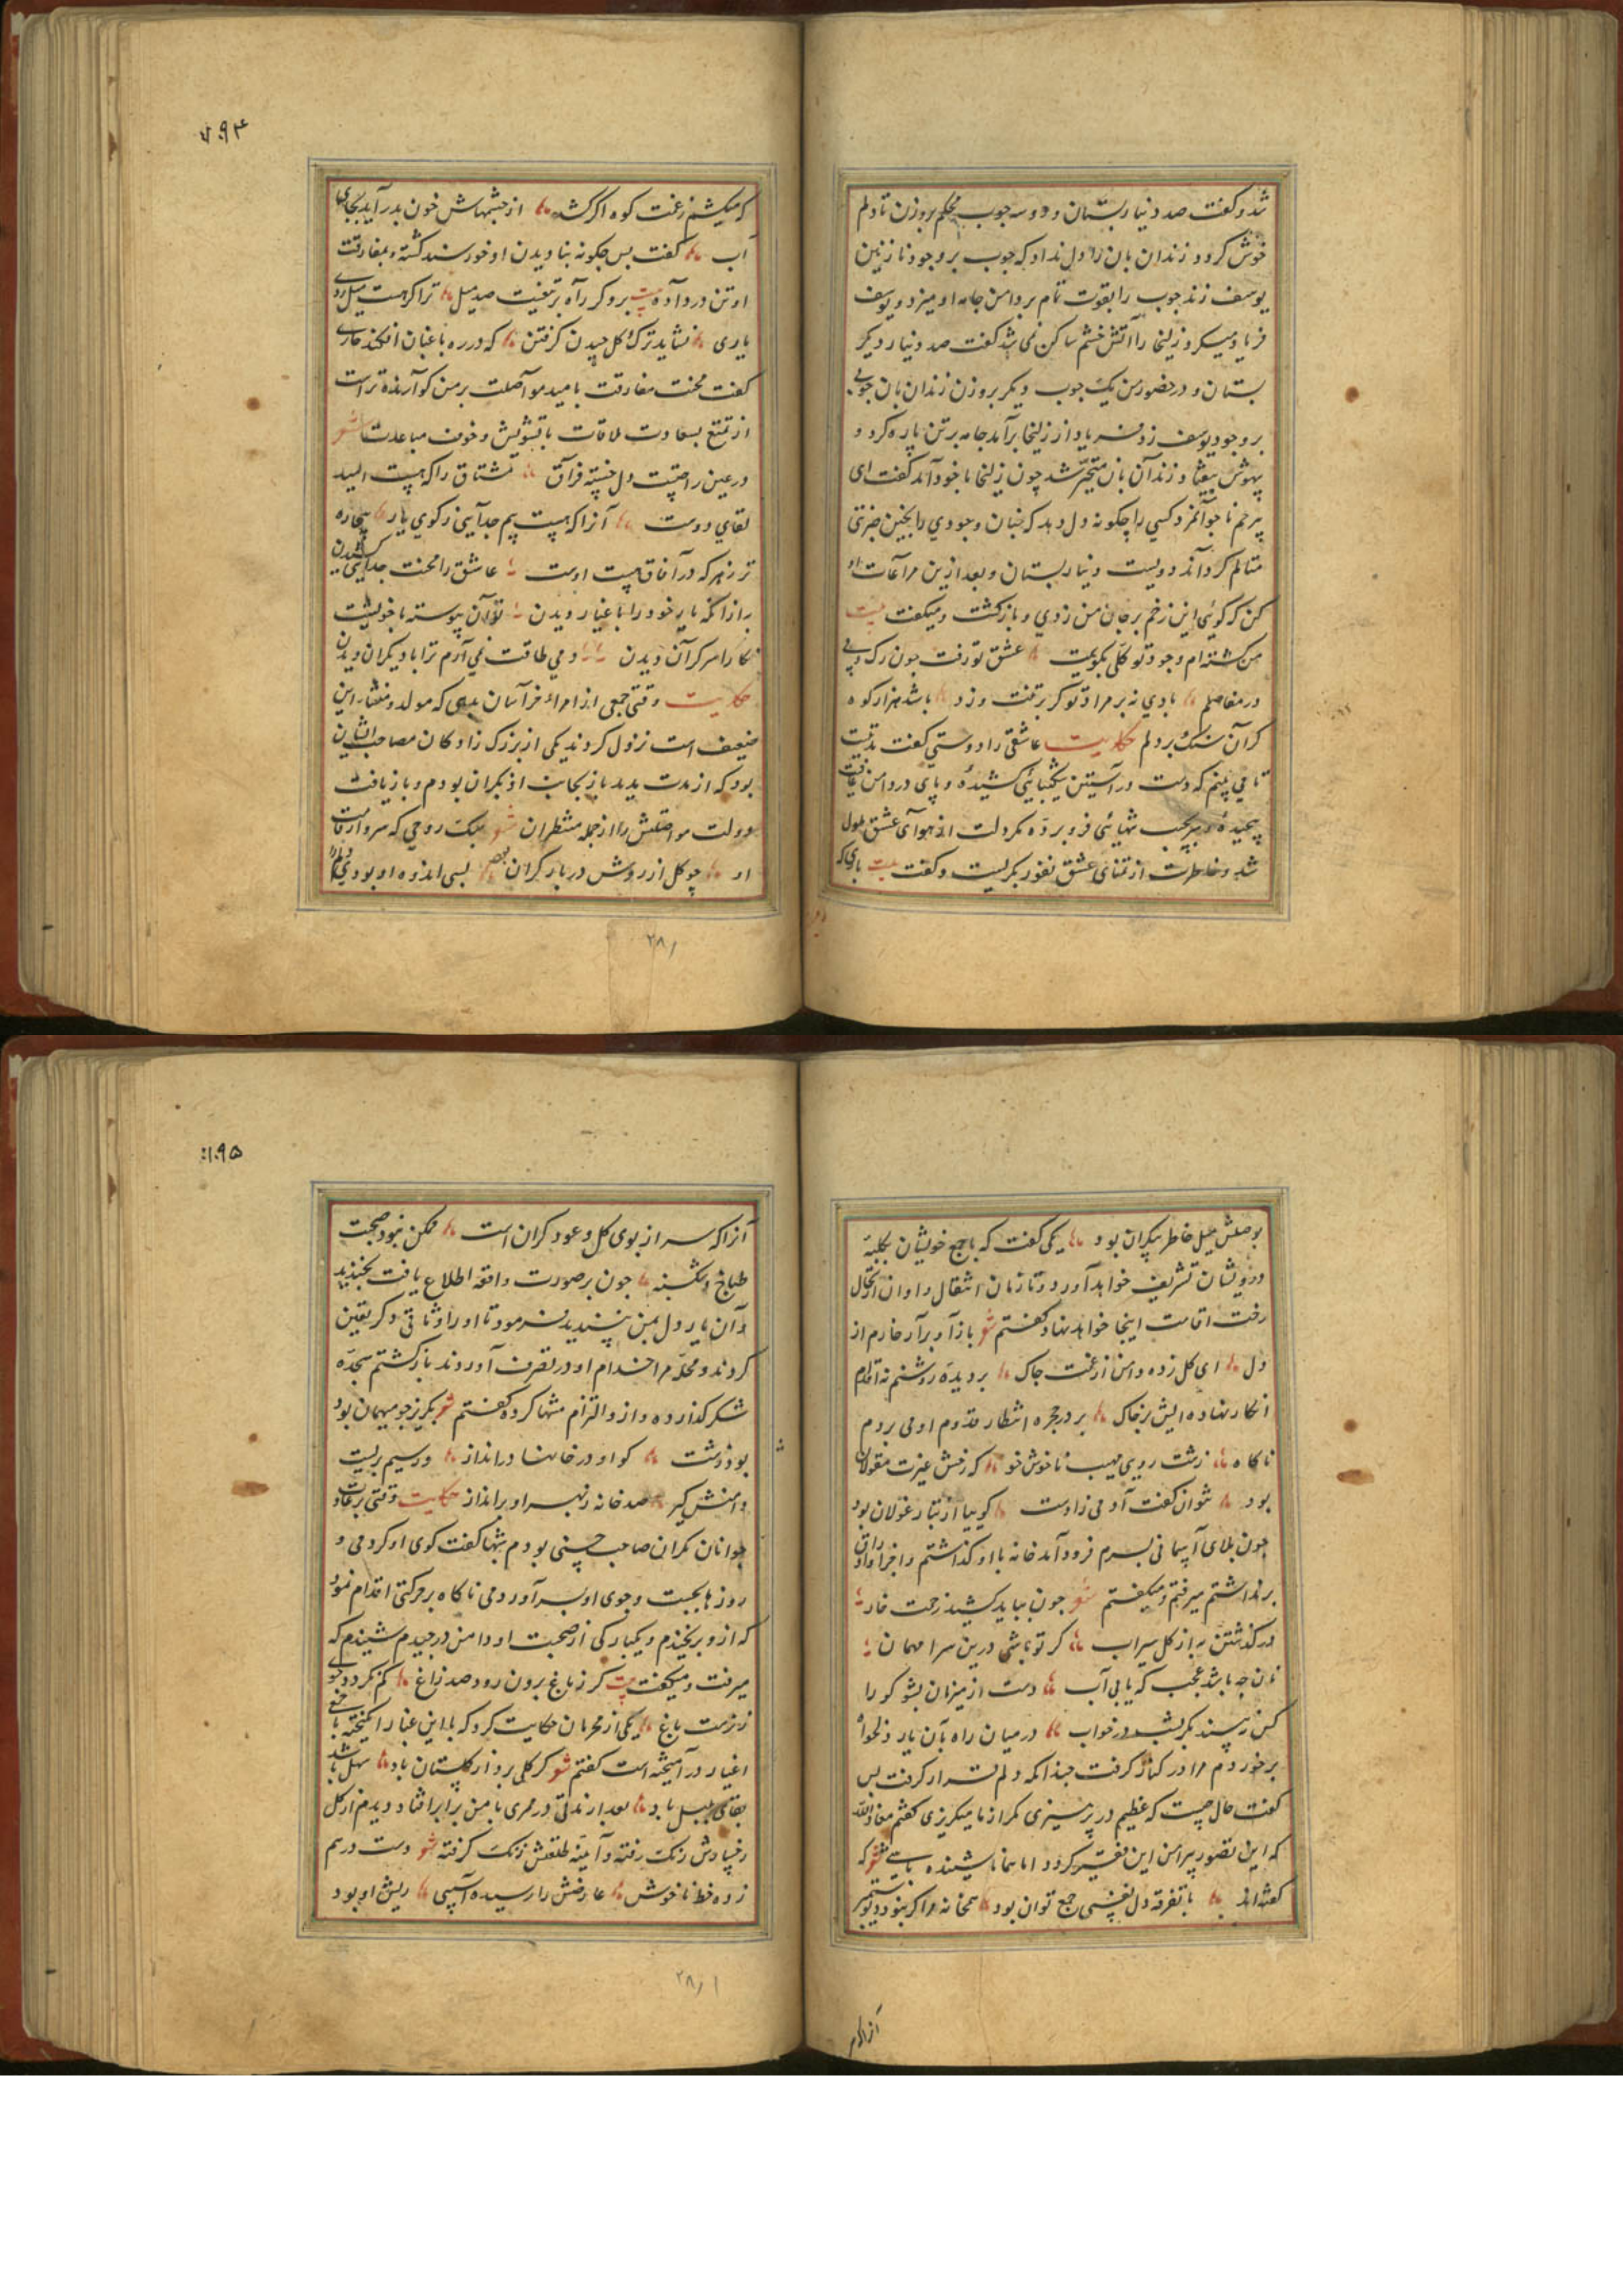 شد و کفت صد دینار بستان و دو سه جوب محکم بروزن تا دلم
خوش کردد زندان بان را دل نداد که جوب بر وجود نازنین
یوسف زند جوب را بقوت تمام بر دامن جامه او میزد و یوسف
فریاد میکرد زلیخا را آتش خشم ساکن نمی شد کفت صد دینار دیکر
بستان و در حضور من یک جوب دیکر بروزن زندان بان جوبی
بر وجود یوسف زد فریاد از زلیخا برآمد جامه بر تن پاره کرد و
بیهوش بیفتاد زندان بان متحیر شد چون زلیخا با خود آمد کفت ای
بیرحم ناجوانمرد کسی را چکونه دل دهد که چنان وجودی را بچنین ضربتی
متالم کرداند دویست دینار بستان و بعد ازین مراعات او
کن که کوئی این زخم بر جان من زدی و بازکشت و میکفت بیت
من کشته ام وجود تو کلی بکویمت عشق تو رفت جون رک و پی
در مفاصلم بادی نه بر مراد تو کر بر تنت وزد باشد هزار کوه
کران سنک بر دلم حکایت عاشقی را دوستی کفت مدتیست
تا می بینم که دست در آستین شکیبائی کشیدۀ و پای در دامن عافیت
پیچیدۀ و سر بجیب تنهائی فرو بردۀ مکر دلت از هوای عشق ملول
شد و خاطرت از تمنای عشق نفور بکریست و کفت بیت باری که
۷۹۴
که میکشم زغمت کوه اکر کشد از چشمهاش خون بدر آید بجای
آب کفت بس چکونه بنا دیدن او خورسند کشته و بمفارقت
او تن در داده بیت برو کر راه بر تیغیست صد میل ترا کر هست میل روی
یاری نشاید ترک کل چیدن کرفتن که در ره باغبان افکند خاری
کفت محنت مفارقت بامید مواصلت بر من کوارنده تر است
از تمتع بسعادت ملاقات با تشویش و خوف مباعدت شعر
در عین راحتست دل خسته فراق مشتاق را که هست امید
لقای دوست آنرا که هست بیم جدایی زکوی یار بیچاره
تر زهر که در آفاق هست اوست عاشق را محنت جدایی کشیدن
به از آنکه یار خود را با اغیار دیدن نتوان پیوسته با خویشت
نکارا سرکران دیدن دمی طاقت نمی آرم ترا با دیکران دیدن
حکایت وقتی جمعی از امراء خراسان بدهی که مولد و منشاء این
ضعیف است نزول کردند یکی از بزرک زادکان مصاحب ایشان
بود که از مدت بدید باز بجانب او نکران بودم و بازیافت
دولت مواصلتش را از جمله منتظران شعر سبک روحی که سرو از قامت
او چو کل از روش در بار کران بود بسی اندوه او بودی دلم را
۲۸۱
بوصلش میل خاطر بیکران بود یکی کفت که با جمع خویشان بکلبۀ
درویشان تشریف خواهد آورد و تا زمان انتقال و اوان ارتحال
رخت اقامت اینجا خواهد نهاد کفتم شعر باز آ و برآر خارم از
دل ای کل زده دامن از غمت چاک بر دیده روشنم نه اقدام
انکار نهاده ایش بر خاک بر در حجره انتظار قدوم او می بردم
ناکاه زشت رویی مهیب ناخوش خو که رخش عبرت مقولان
بود نتوان کفت آدمی زادست کوییا از تبار غولان بود
چون بلای آسمانی بسرم فرود آمد خانه با او کذاشتم و اجزا و اوراق
برداشتم میرفتم و میکفتم شعر چون بباید کشید زحمت خار
درکذشتن به از کل سیراب کر تو باشی درین سرا مهمان
نان چه باشد عجب که یابی آب دست از میزبان بشو کورا
کس نبیند مکر بشب در خواب در میان راه بآن یار دلخواه
برخوردم مرا در کنار کرفت چندانکه دلم قرار کرفت بس
کفت حال چیست که عظیم در پرهیزی مکر از ما میکریزی کفتم معاذ الله
که این تصور پیرامن این فقیر کردد اما همانا شنیده باشی شعر که
کفته اند با تفرقه دل نفسی جمع توان بود همخانه مرا کر نبود دیو ستمبر
آنرا که
۷۹۵
آنرا که سر از بوی کل و عود کران است ممکن نبود صحبت
طباخ و شکنبه چون بر صورت واقعه اطلاع یافت بخندید
و آن یار دل بمن بپسندید فرمود تا او را وثاقی دکر تعیین
کردند و محله مرا خدام او در تصرف آوردند بازکشتم سجده
شکر کذارده و از او التزام منتها کرده کفتم شعر بکریز چو میهمان بود
بود زشت کو او در خانها در انداز ور سیم بریست
دامنش کیر صد خانه زبهر او برانداز حکایت وقتی بر عادت
جوانان نکران صاحب حسنی بودم شبها کفت کوی او کردمی و
روزها بجست و جوی او بسر آوردمی ناکاه بر حرکتی اقدام نمود
که ازو برنجیدم و یکبارکی از صحبت او دامن درچیدم شنیدم که
میرفت و میکفت بیت کر زباغ برون رود صد زاغ کم نکردد خوی
نزهت باغ یکی از محرمان حکایت کرد که با این غبار انکیخته با جمعی
اغیار درآمیخته است کفتم شعر کر کلی برد از کلستان باد سهل باشد
بقای بلبل باد بعد از مدتی در ممری با من برابر افتاد دیدم از کل
رخسارش رنک رفته و آیینه طلعتش زنک کرفته شعر دست در هم
زده خط ناخوش عارضش را رسیده آسیبی ریش او بود
۲۸۱